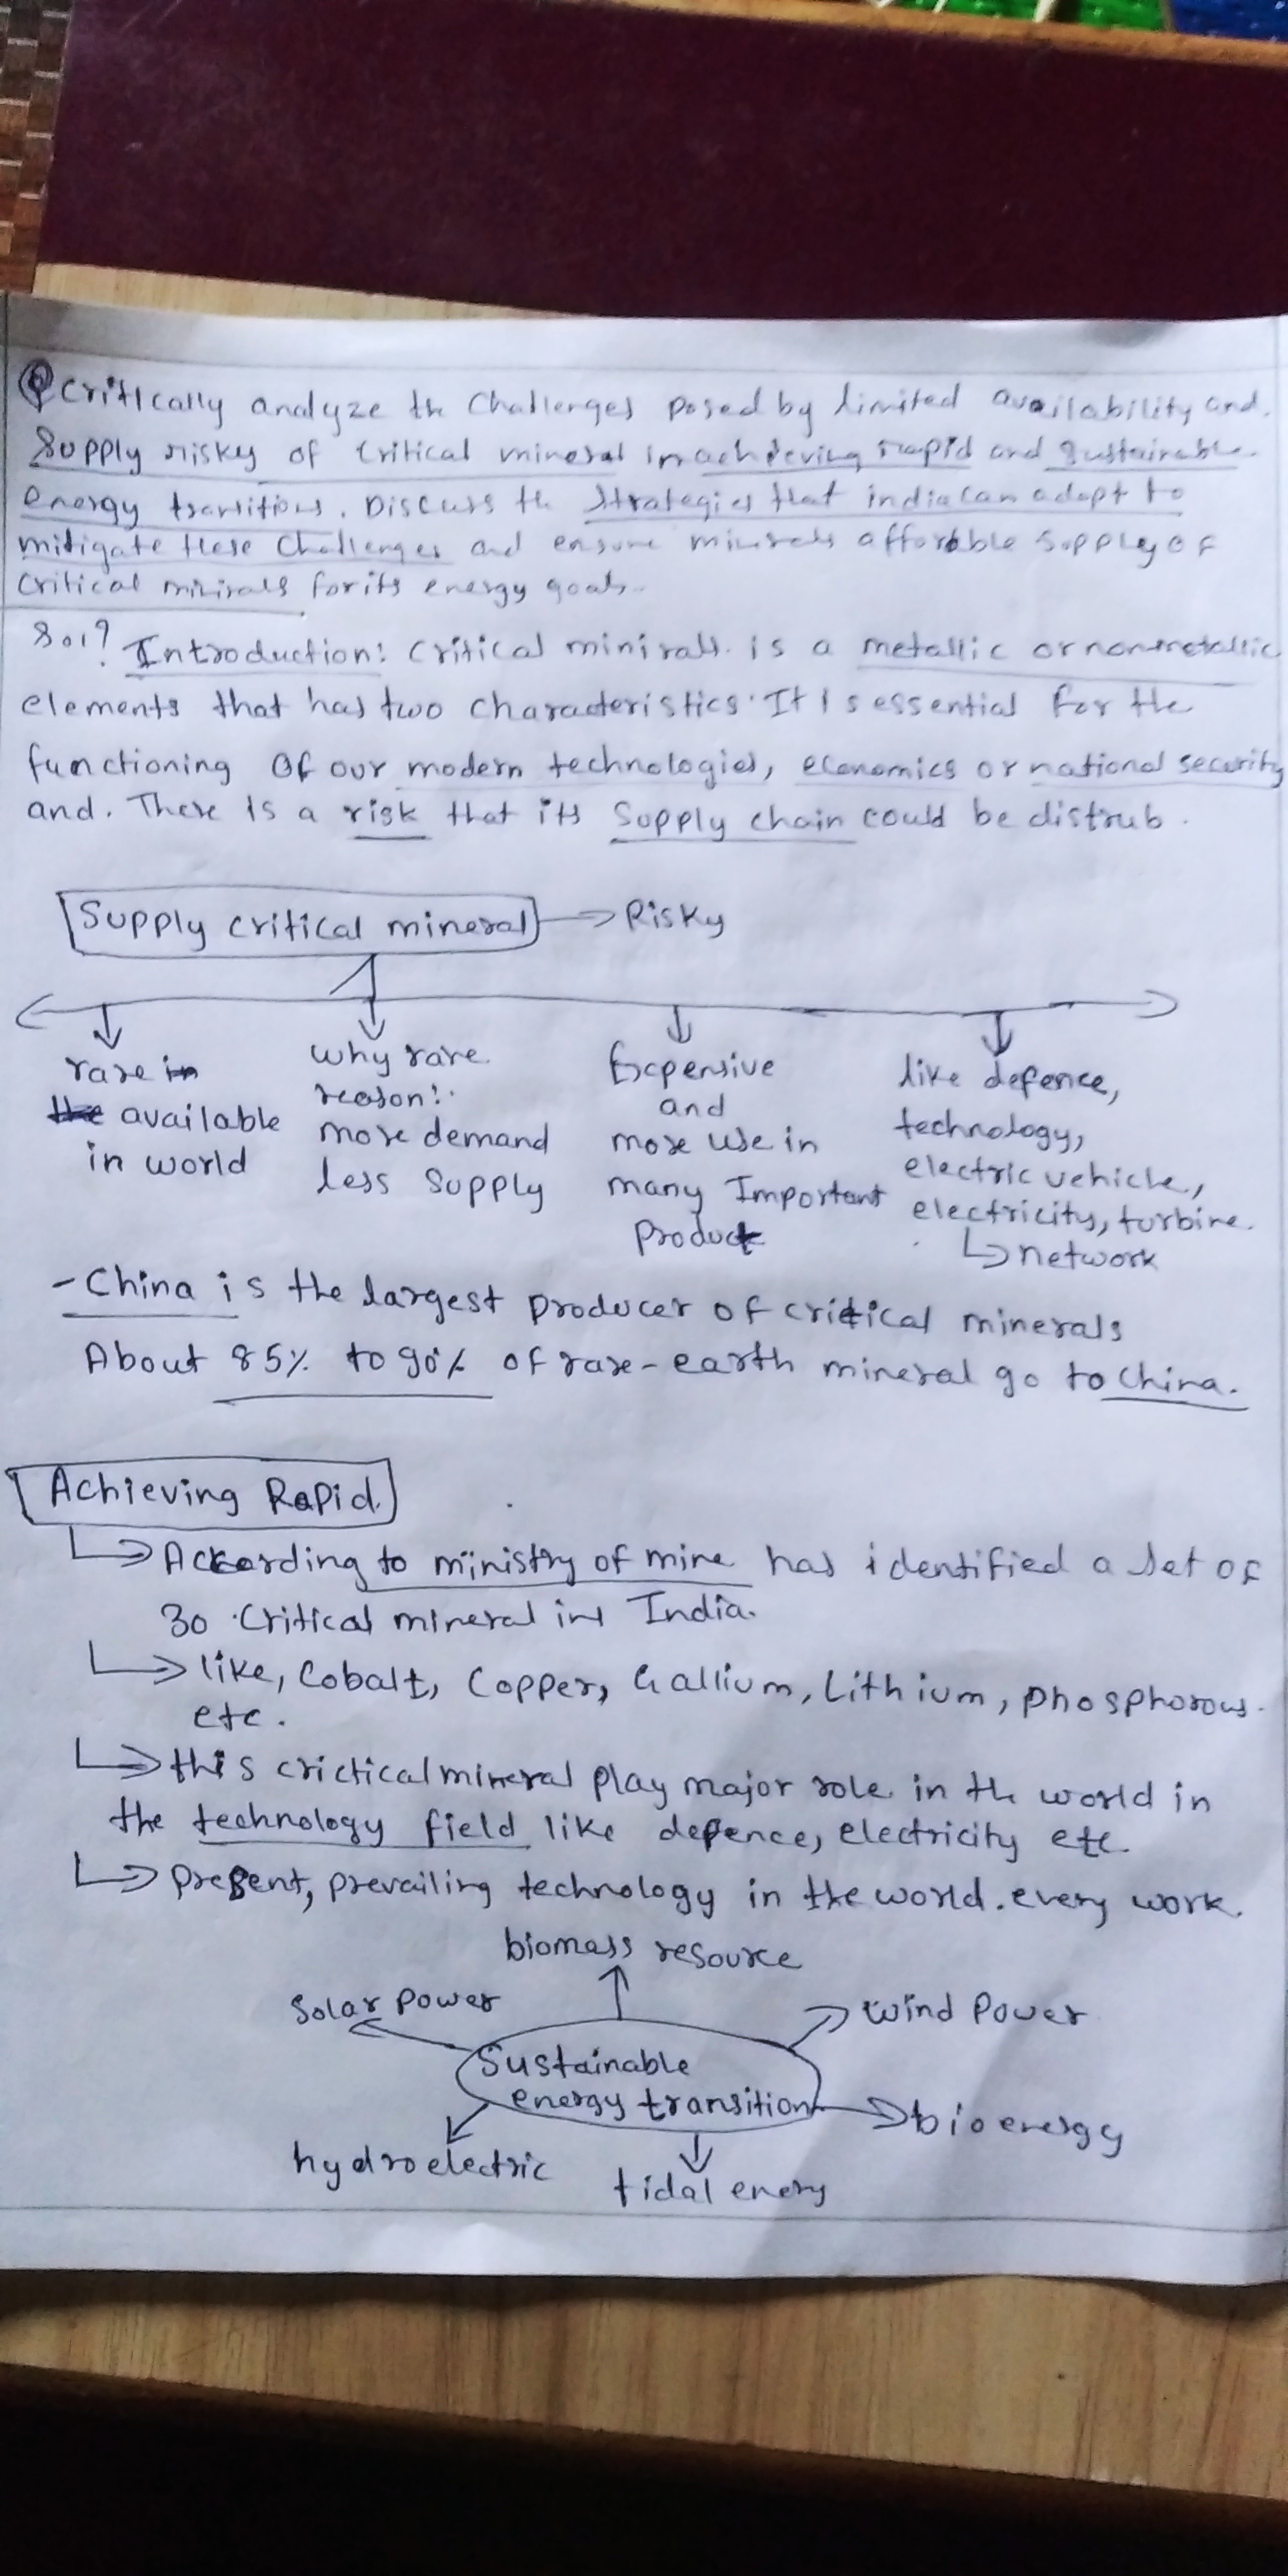 Q Critically analyze the Challenges posed by limited availability and.
Supply risky of Critical mineral in achieving rapid and Sustainable
energy transitions. Discuss the Strategies that india can adopt to
mitigate these challenges and ensure minerals affordable Supply of
Critical minirals for its energy goals.
Sol? Introduction: Critical minirals. is a metallic or nonmetallic
elements that has two characteristics. It Is essential for the
functioning Of our modern technologies, economics or national security
and. There Is a risk that its Supply chain could be distrub.
Supply critical mineral → Risky
rare available in world
why rare. reason:. more demand less Supply
Expensive and more use in many Important Product
like defence, technology, electric vehicle, electricity, turbine.
↳ network
- China is the largest Producer of critical minerals
About 85% to 90% of rare-earth mineral go to China.
Achieving Rapid.
↳ According to ministry of mine has identified a set of
30 Critical mineral in India.
↳ like, Cobalt, Copper, Gallium, Lithium, phosphorous.
etc.
↳ this crictical mineral play major role in the world in
the technology field like defence, electricity etc.
↳ present, prevailing technology in the world. every work.
biomass resource
Solar power
wind Power
Sustainable
energy transition
bioenergy
hydroelectric
tidal enery